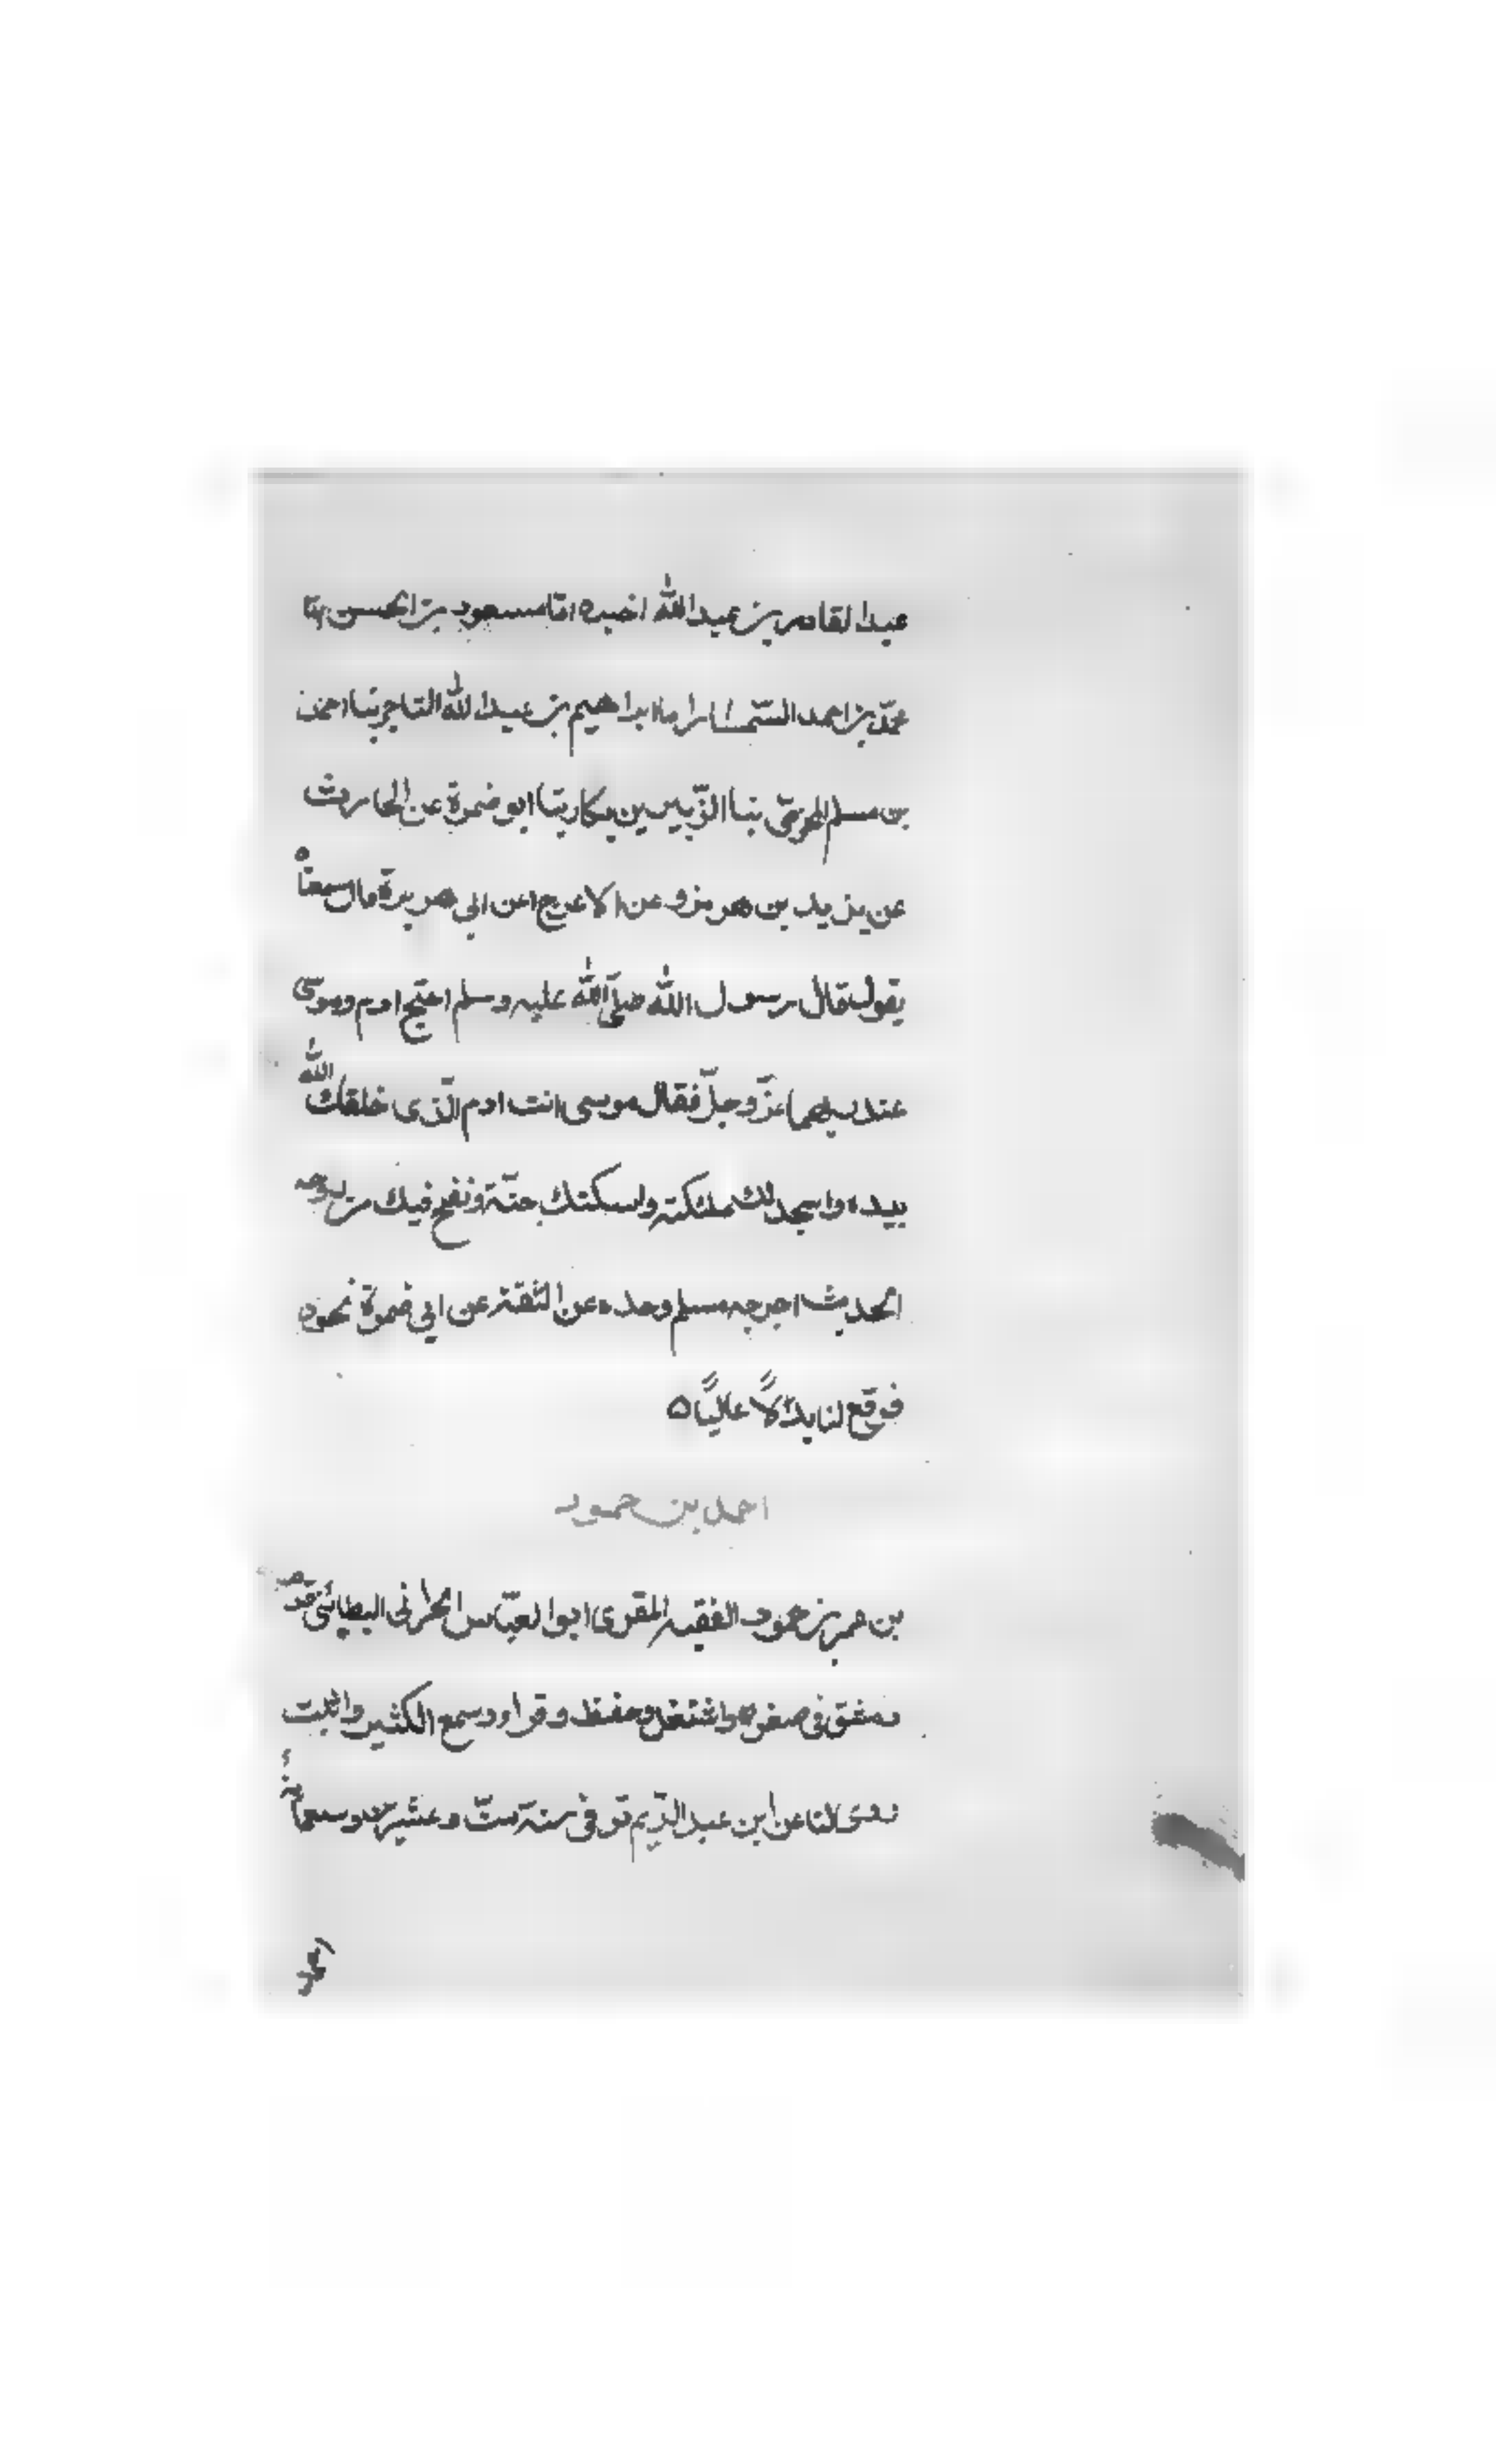 عبد القادر بن عبد الله اخبره انا مسعود بن الحسن انا
محمد بن احمد السمسار انا ابراهيم بن عبد الله التاجر ثنا احمد
بن مسلم ثنا الزبير بن بكار ثنا ابو ضمرة عن الحارث
عن يزيد بن هرمز وعن الاعرج عن ابي هريرة قال سمعناه
يقول قال رسول الله صلى الله عليه وسلم احتج ادم وموسى
عند ربهما عز وجل فقال موسى انت ادم الذى خلقك الله
بيده واسجد لك ملئكته واسكنك جنته ونفخ فيك من روحه
الحديث اخرجه مسلم وحده عن الثقة عن ابي ضمرة نحوه
فوقع لنا بدلًا عاليًا ه
احمد بن حمود
بن عمر بن حمود الفقيه المقرى ابو العباس الحرانى البطائنى
دمشق فى صغره واشتغل وحفظ وقرا وسمع الكثير واثبت
لنا عن ابن عبد الدايم توفى سنة ست وعشرين وسبعمائة